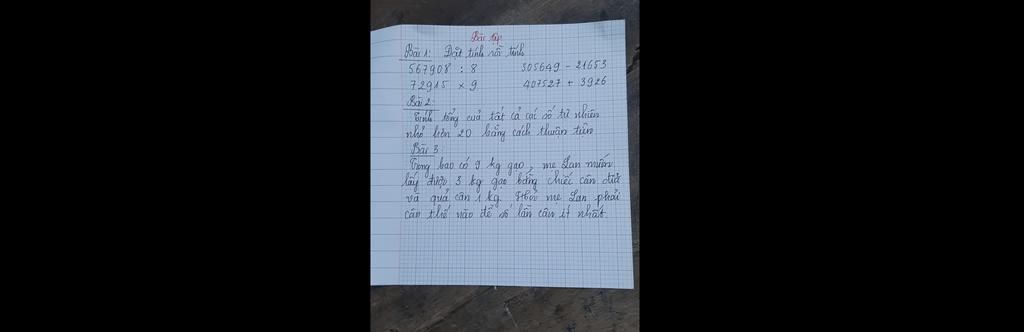 Bài tập
Bài 1: Đặt tính rồi tính
567908 : 8 305649 - 21653
72915 x 9 407527 + 3926
Bài 2:
Tính tổng của tất cả các số tự nhiên
nhỏ hơn 20 bằng cách thuận tiện
Bài 3
Trong bao có 9 kg gạo, mẹ Lan muốn
lấy được 3 kg gạo bằng chiếc cân đĩa
và quả cân 1 kg. Hỏi mẹ Lan phải
cân thế nào để số lần cân ít nhất